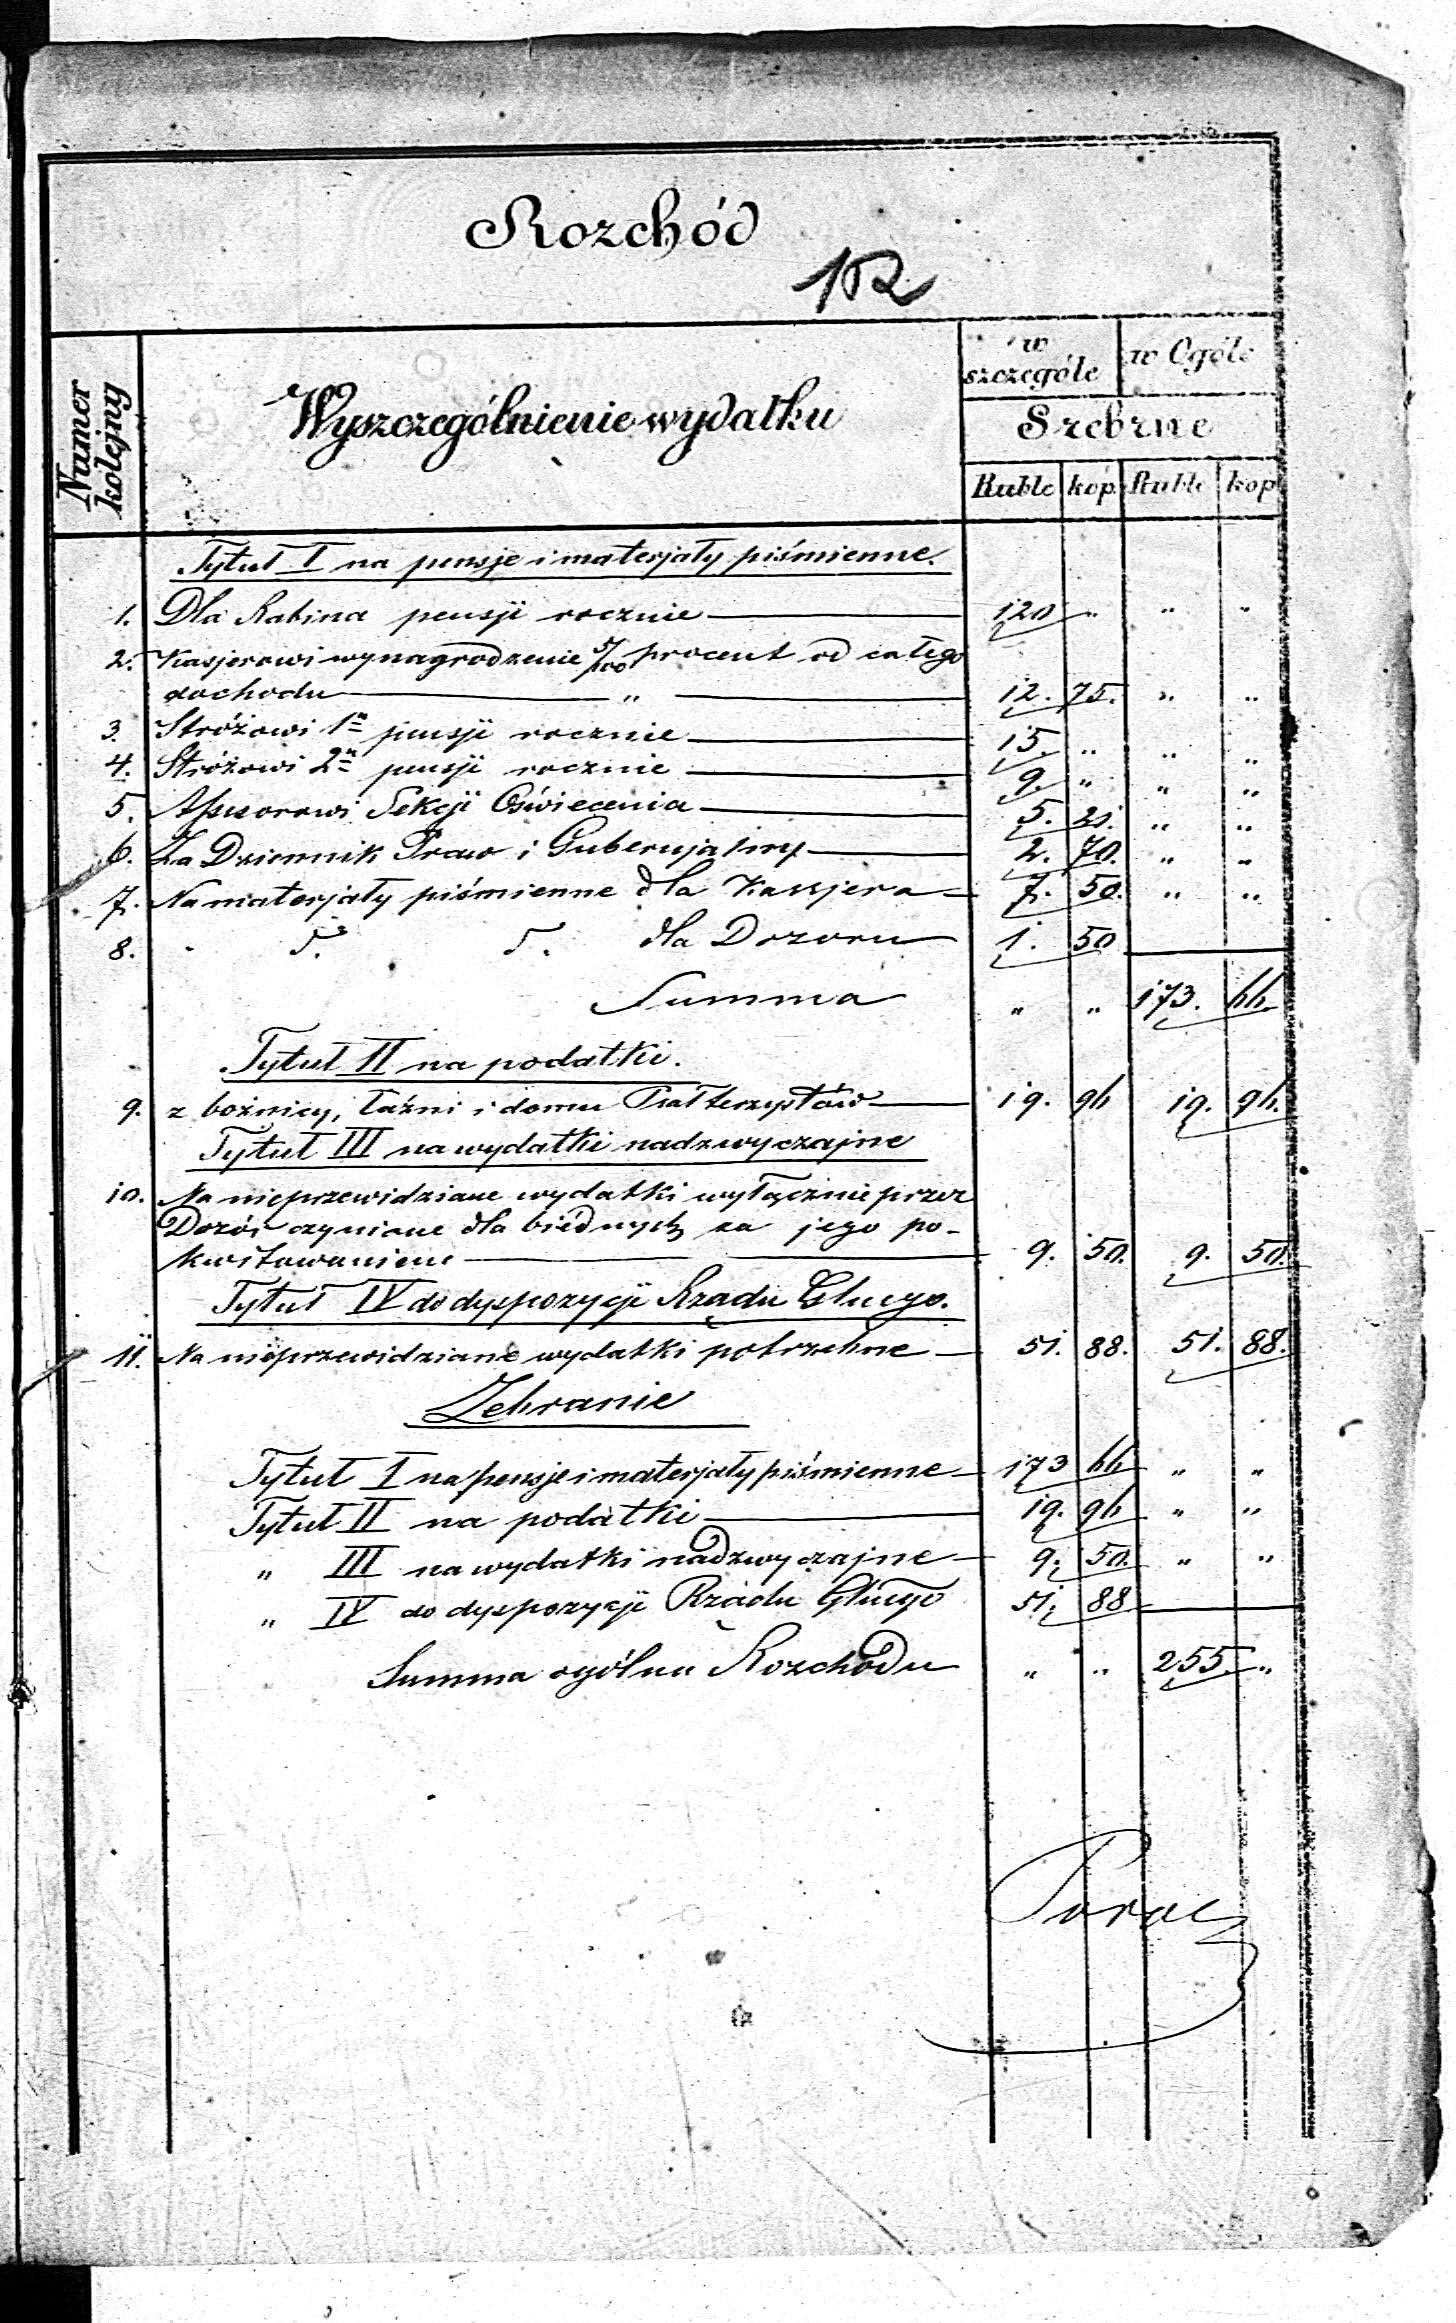 Rozchód
102
Numer kolejny
Wyszczególnienie wydatku
w szczególe
w Ogóle
Srebrne
Ruble kop Ruble kop
Tytuł I na pensje i materjały piśmienne.
1. Dla Rabina pensji rocznie 120 " " "
2. Kasjerowi wynagrodzenie 5/100 procent od całego
dochodu " 12. 75. " "
3. Stróżowi 1m pensji rocznie 15. " " "
4. Stróżowi 2m pensji rocznie 9. " " "
5. Assesorowi Sekcji Oświecenia 5. 21. " "
6. Za Dziennik Praw i Gubernjalny 2. 70. " "
7. Na materjały piśmienne dla Kassjera 7. 50. " "
8. dla Dozoru 1. 50
Summa " " 173. 66.
Tytuł II na podatki.
9. z bożnicy, łaźni i domu 19. 96 19. 96.
Tytuł III na wydatki nadzwyczajne
10. Na nieprzewidziane wydatki wyłącznie przez
Dozór czynione dla biednych za jego po-
kwitowaniem 9. 50. 9. 50.
Tytuł IV do dyspozycji Rządu Glnego.
11. Na nieprzewidziane wydatki potrzebne 51. 88. 51. 88.
Zebranie
Tytuł I na pensje i materjały piśmienne 173 66 " "
Tytuł II na podatki 19. 96 " "
" III na wydatki nadzwyczajne 9. 50. " "
" IV do dyspozycji Rządu Glnego 51. 88
Summa ogólna Rozchodu " " 255. "